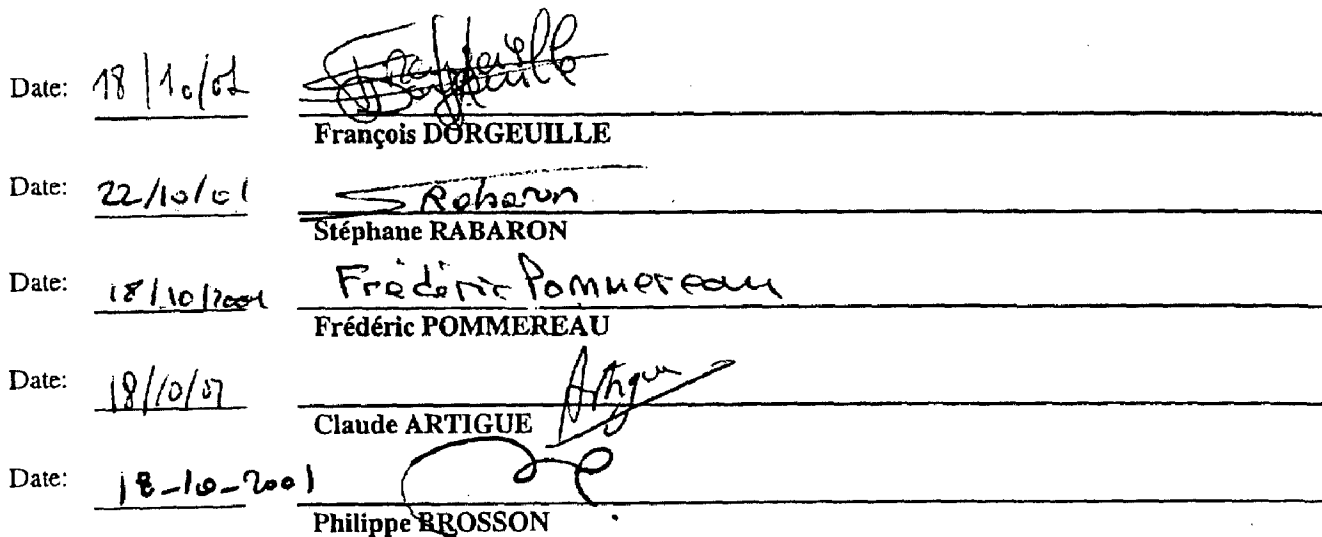 Date: 18/10/01
François DORGEUILLE
Date: 22/10/01 S Rabaron
Stéphane RABARON
Date: 18/10/2001 Frédéric Pommereau
Frédéric POMMEREAU
Date: 18/10/01 Artigue
Claude ARTIGUE
Date: 18-10-2001
Philippe BROSSON